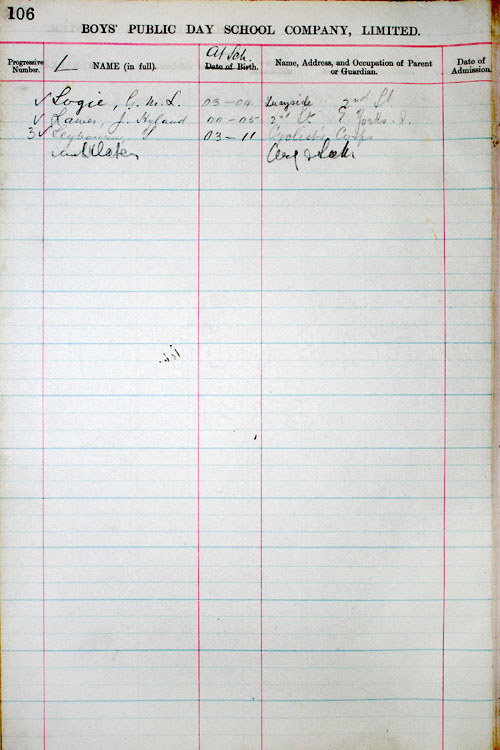 106
BOYS' PUBLIC DAY SCHOOL COMPANY, LIMITED.
Progressive Number.
L NAME (in full).
At Sch.
Date of Birth.
Name, Address, and Occupation of Parent or Guardian.
Date of Admission.
✓ Logie, C. M. L. 03-04 2nd Lt
✓ Lawes, J. Hyland 00-05 2nd Lt. E Yorks. R.
3 ✓ 03-11 Cyclist Corps